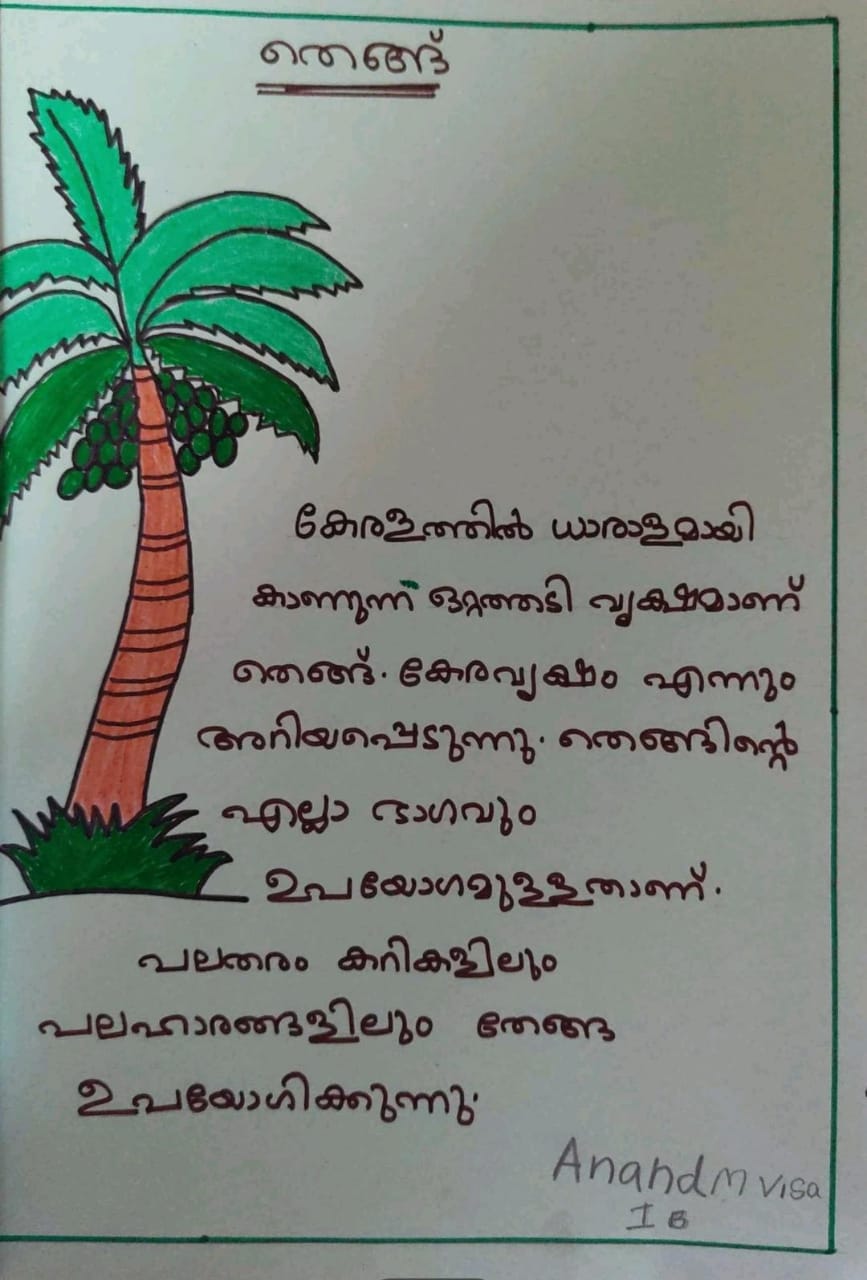 തെങ്ങ്
കേരളത്തിൽ ധാരാളമായി
കാണുന്ന ഒറ്റത്തടി വൃക്ഷമാണ്
തെങ്ങ്. കേരവൃക്ഷം എന്നും
അറിയപ്പെടുന്നു. തെങ്ങിന്റെ
എല്ലാ ഭാഗവും
ഉപയോഗമുള്ളതാണ്.
പലതരം കറികളിലും
പലഹാരങ്ങളിലും തേങ്ങ
ഉപയോഗിക്കുന്നു.
Anand M Visa
I B